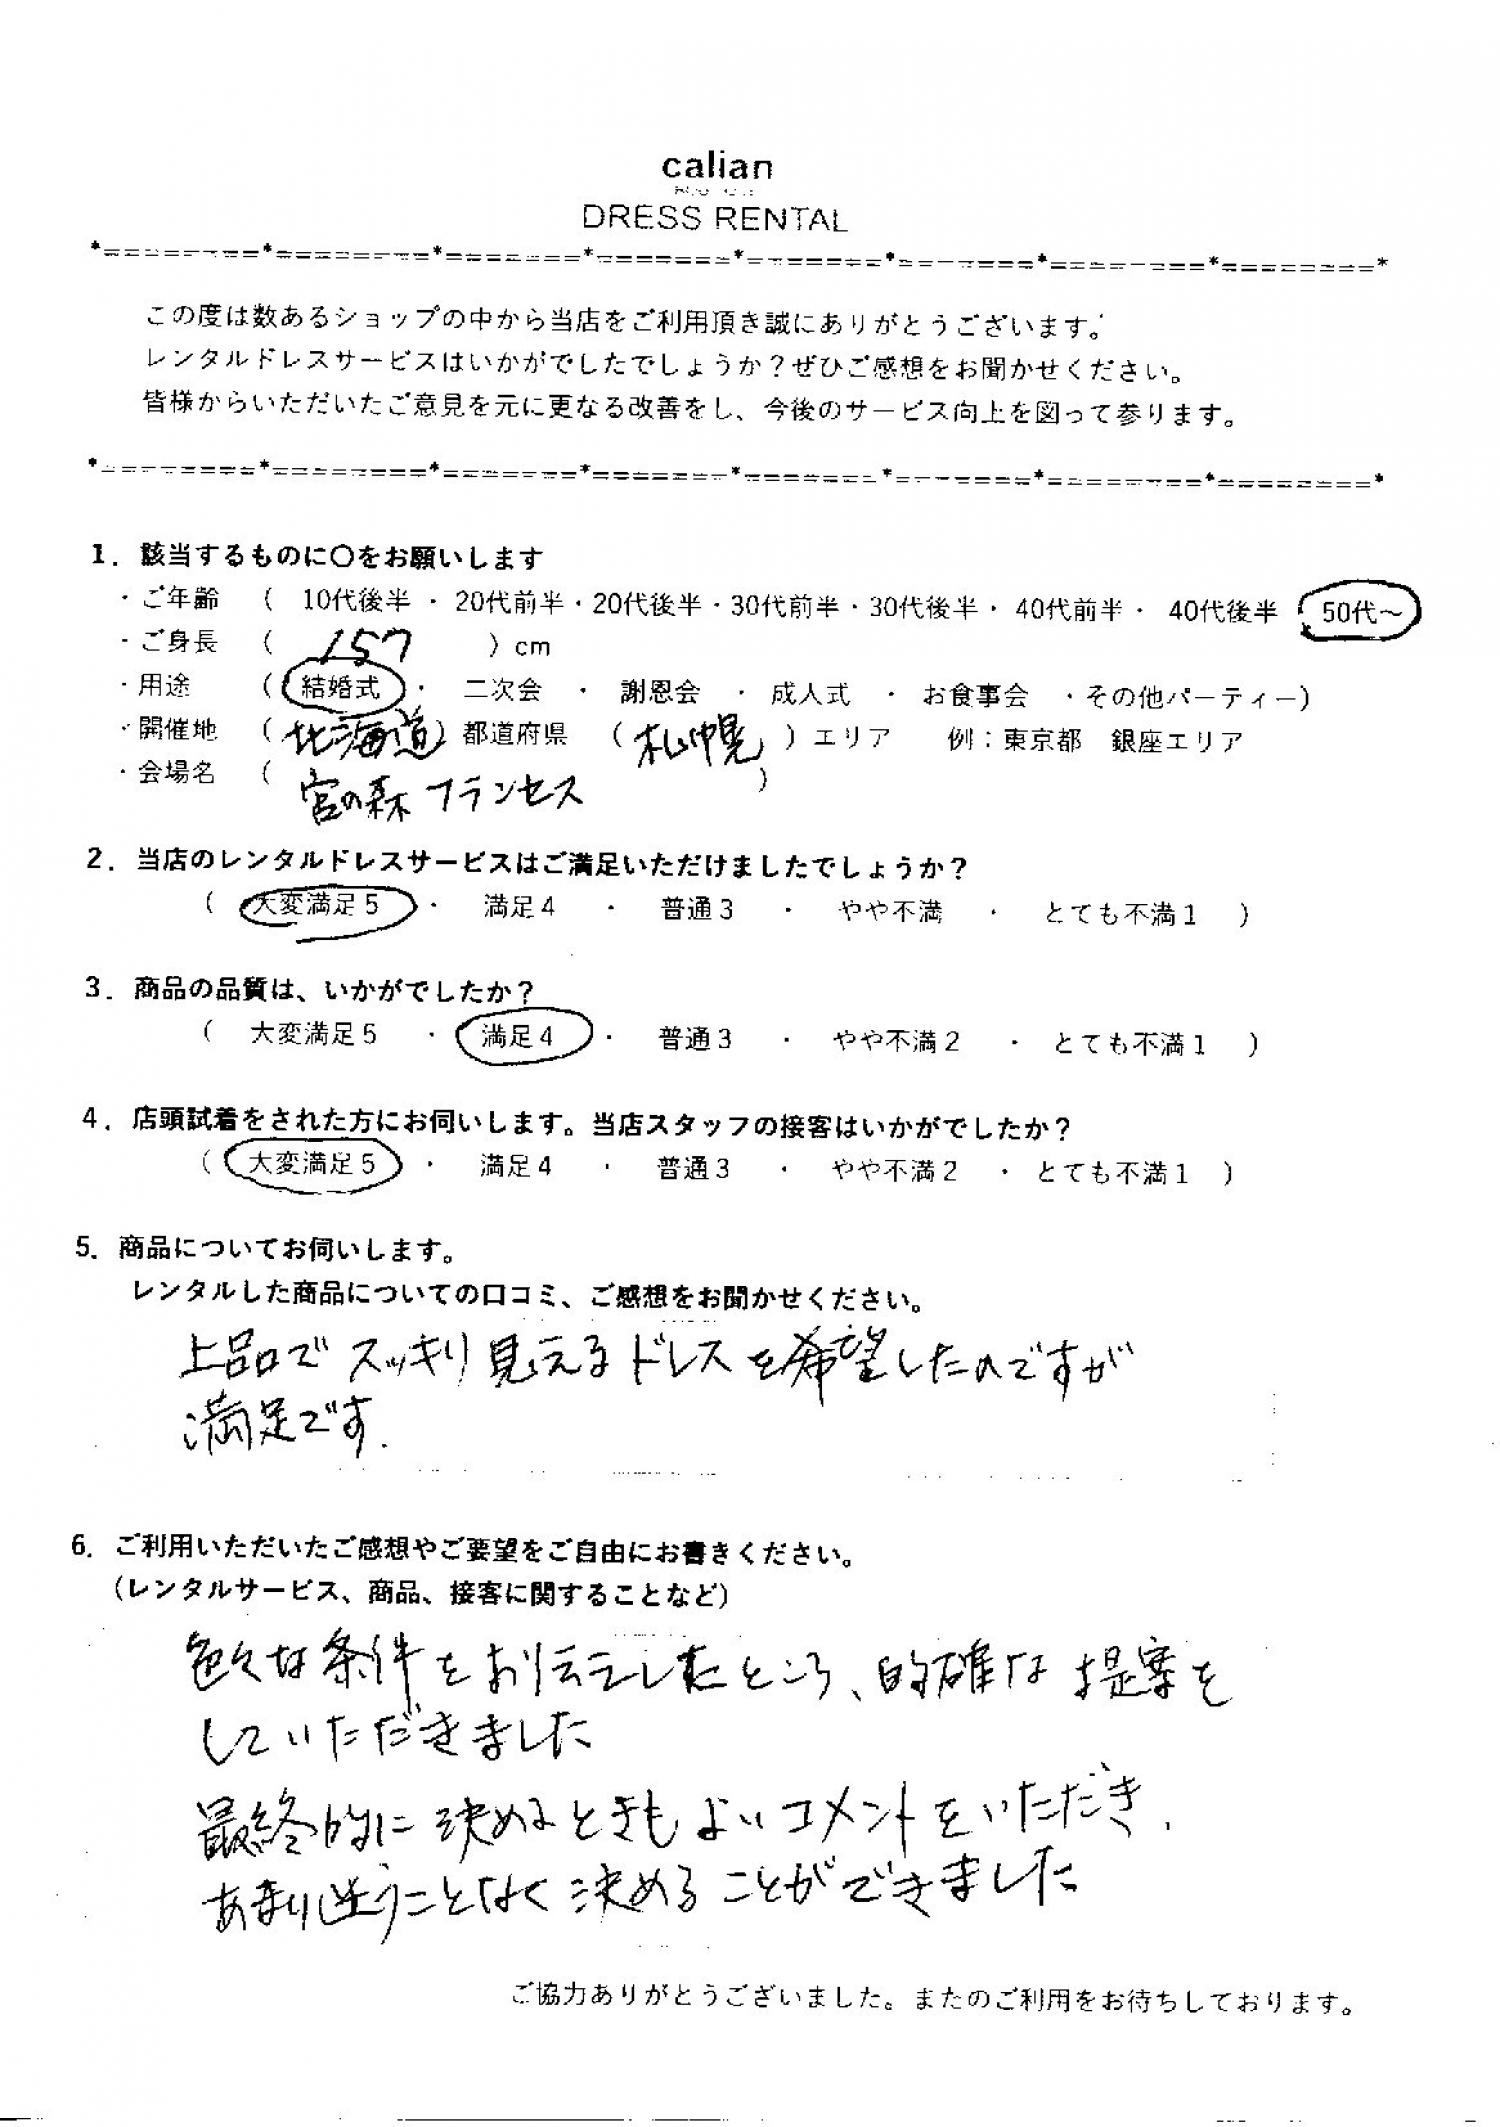 calian
DRESS RENTAL
*========*========*=======*=======*=======*=======*========*========*
この度は数あるショップの中から当店をご利用頂き誠にありがとうございます。
レンタルドレスサービスはいかがでしたでしょうか？ぜひご感想をお聞かせください。
皆様からいただいたご意見を元に更なる改善をし、今後のサービス向上を図って参ります。
*========*========*=======*=======*=======*=======*========*========*
1．該当するものに〇をお願いします
・ご年齢 （ 10代後半 ・ 20代前半・20代後半・30代前半・30代後半・ 40代前半・ 40代後半 50代～
・ご身長 （ 157 ）cm
・用途 （ 結婚式 ・ 二次会 ・ 謝恩会 ・ 成人式 ・ お食事会 ・その他パーティー）
・開催地 （ 北海道 ）都道府県 （ 札幌 ）エリア 例：東京都 銀座エリア
・会場名 （ 宮の森フランセス ）
2．当店のレンタルドレスサービスはご満足いただけましたでしょうか？
（ 大変満足５ ・ 満足４ ・ 普通３ ・ やや不満 ・ とても不満１ ）
3．商品の品質は、いかがでしたか？
（ 大変満足５ ・ 満足４ ・ 普通３ ・ やや不満２ ・ とても不満１ ）
4．店頭試着をされた方にお伺いします。当店スタッフの接客はいかがでしたか？
（ 大変満足５ ・ 満足４ ・ 普通３ ・ やや不満２ ・ とても不満１ ）
5．商品についてお伺いします。
レンタルした商品についての口コミ、ご感想をお聞かせください。
上品でスッキリ見えるドレスを希望したのですが
満足です.
6．ご利用いただいたご感想やご要望をご自由にお書きください。
（レンタルサービス、商品、接客に関することなど）
色々な条件をお伝えしたところ、的確な提案を
していただきました
最終的に決めるときもよいコメントをいただき、
あまり迷うことなく決めることができました
ご協力ありがとうございました。またのご利用をお待ちしております。